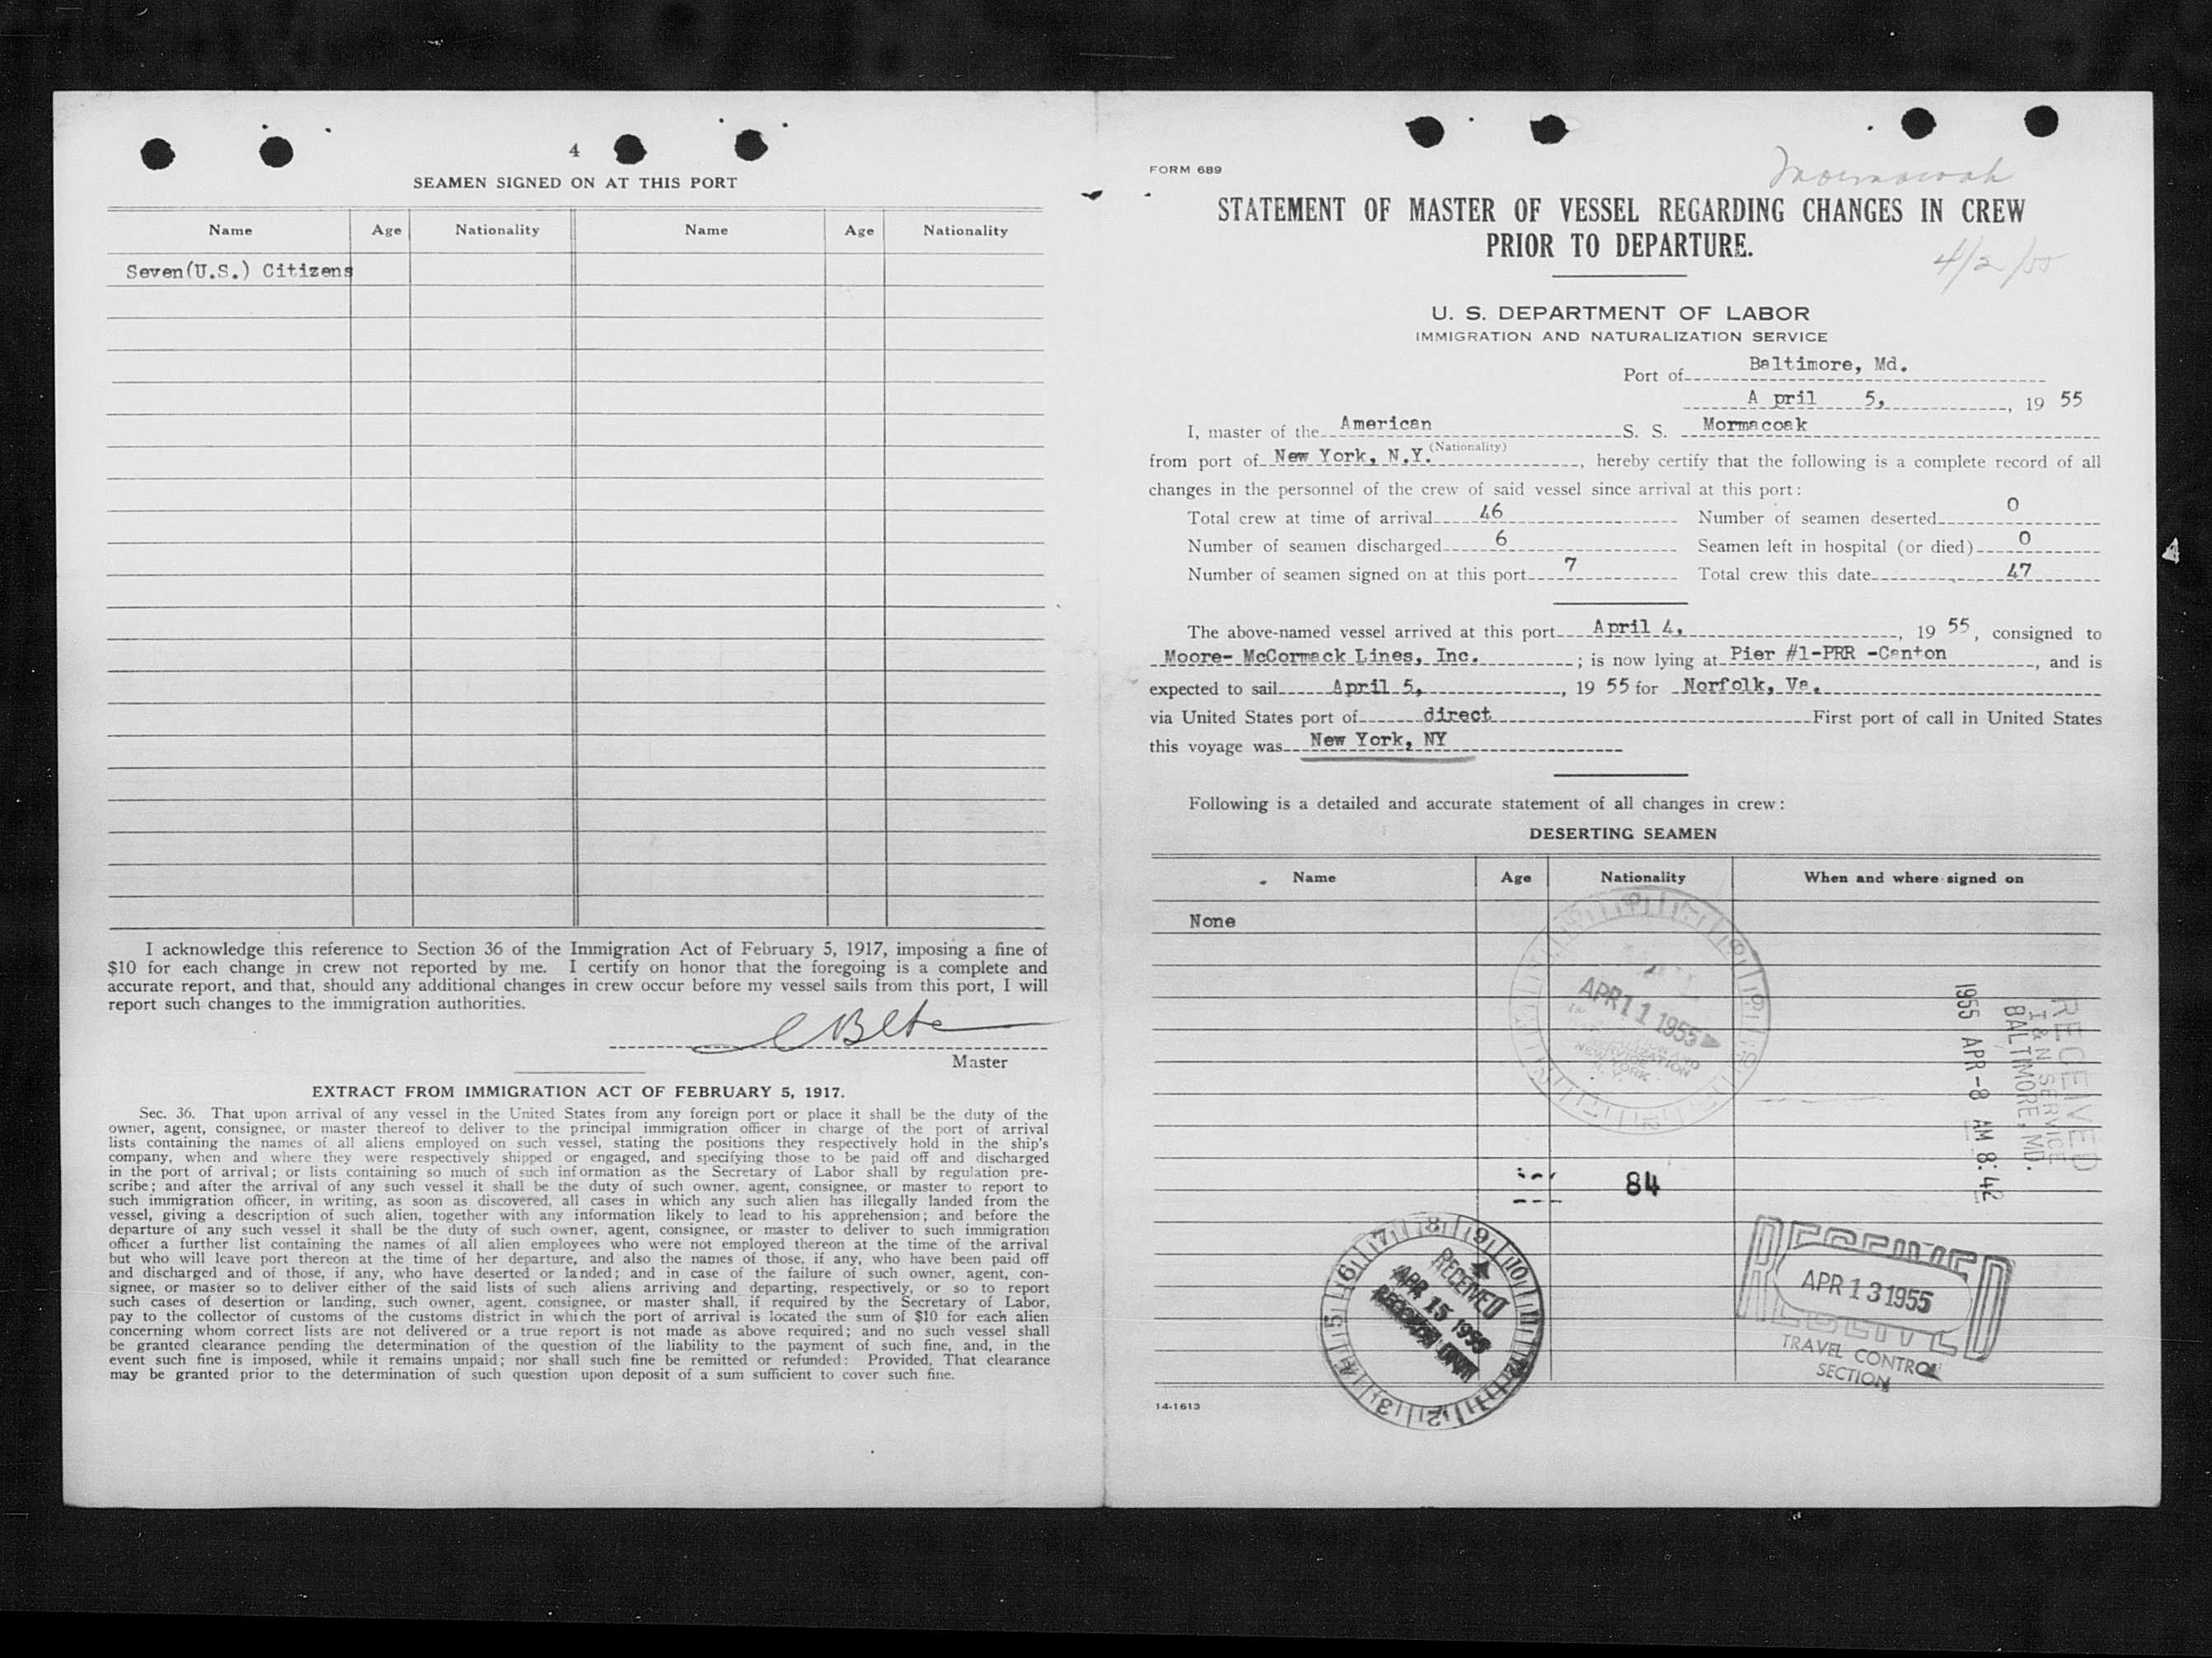 4
SEAMEN SIGNED ON AT THIS PORT
Name Age Nationality Name Age Nationality
Seven(U.S.) Citizens
I acknowledge this reference to Section 36 of the Immigration Act of February 5, 1917, imposing a fine of
$10 for each change in crew not reported by me. I certify on honor that the foregoing is a complete and
accurate report, and that, should any additional changes in crew occur before my vessel sails from this port, I will
report such changes to the immigration authorities.
Master
EXTRACT FROM IMMIGRATION ACT OF FEBRUARY 5, 1917.
Sec. 36. That upon arrival of any vessel in the United States from any foreign port or place it shall be the duty of the
owner, agent, consignee, or master thereof to deliver to the principal immigration officer in charge of the port of arrival
lists containing the names of all aliens employed on such vessel, stating the positions they respectively hold in the ship's
company, when and where they were respectively shipped or engaged, and specifying those to be paid off and discharged
in the port of arrival; or lists containing so much of such information as the Secretary of Labor shall by regulation pre-
scribe; and after the arrival of any such vessel it shall be the duty of such owner, agent, consignee, or master to report to
such immigration officer, in writing, as soon as discovered, all cases in which any such alien has illegally landed from the
vessel, giving a description of such alien, together with any information likely to lead to his apprehension; and before the
departure of any such vessel it shall be the duty of such owner, agent, consignee, or master to deliver to such immigration
officer a further list containing the names of all alien employees who were not employed thereon at the time of the arrival
but who will leave port thereon at the time of her departure, and also the names of those, if any, who have been paid off
and discharged and of those, if any, who have deserted or landed; and in case of the failure of such owner, agent, con-
signee, or master so to deliver either of the said lists of such aliens arriving and departing, respectively, or so to report
such cases of desertion or landing, such owner, agent, consignee, or master shall, if required by the Secretary of Labor,
pay to the collector of customs of the customs district in which the port of arrival is located the sum of $10 for each alien
concerning whom correct lists are not delivered or a true report is not made as above required; and no such vessel shall
be granted clearance pending the determination of the question of the liability to the payment of such fine, and, in the
event such fine is imposed, while it remains unpaid; nor shall such fine be remitted or refunded: Provided, That clearance
may be granted prior to the determination of such question upon deposit of a sum sufficient to cover such fine.
FORM 689
Mormacoak
STATEMENT OF MASTER OF VESSEL REGARDING CHANGES IN CREW
PRIOR TO DEPARTURE.
4/2/55
U. S. DEPARTMENT OF LABOR
IMMIGRATION AND NATURALIZATION SERVICE
Port of Baltimore, Md.
A pril 5, 19 55
I, master of the American S. S. Mormacoak
(Nationality)
from port of New York, N.Y., hereby certify that the following is a complete record of all
changes in the personnel of the crew of said vessel since arrival at this port:
Total crew at time of arrival 46 Number of seamen deserted 0
Number of seamen discharged 6 Seamen left in hospital (or died) 0
Number of seamen signed on at this port 7 Total crew this date 47
The above-named vessel arrived at this port April 4, 19 55, consigned to
Moore- McCormack Lines, Inc.; is now lying at Pier #1-PRR -Canton, and is
expected to sail April 5, 19 55 for Norfolk, Va.
via United States port of direct First port of call in United States
this voyage was New York, NY
Following is a detailed and accurate statement of all changes in crew:
DESERTING SEAMEN
Name Age Nationality When and where signed on
None
APR 11 1955
NATURALIZATION
SERVICE
NEW YORK
N. Y.
RECEIVED
I & N SERVICE
BALTIMORE, MD.
1955 APR-8 AM 8:42
84
RECEIVED
APR 15 1955
RECORD UNIT
RECEIVED
APR 13 1955
TRAVEL CONTROL
SECTION
14-1613